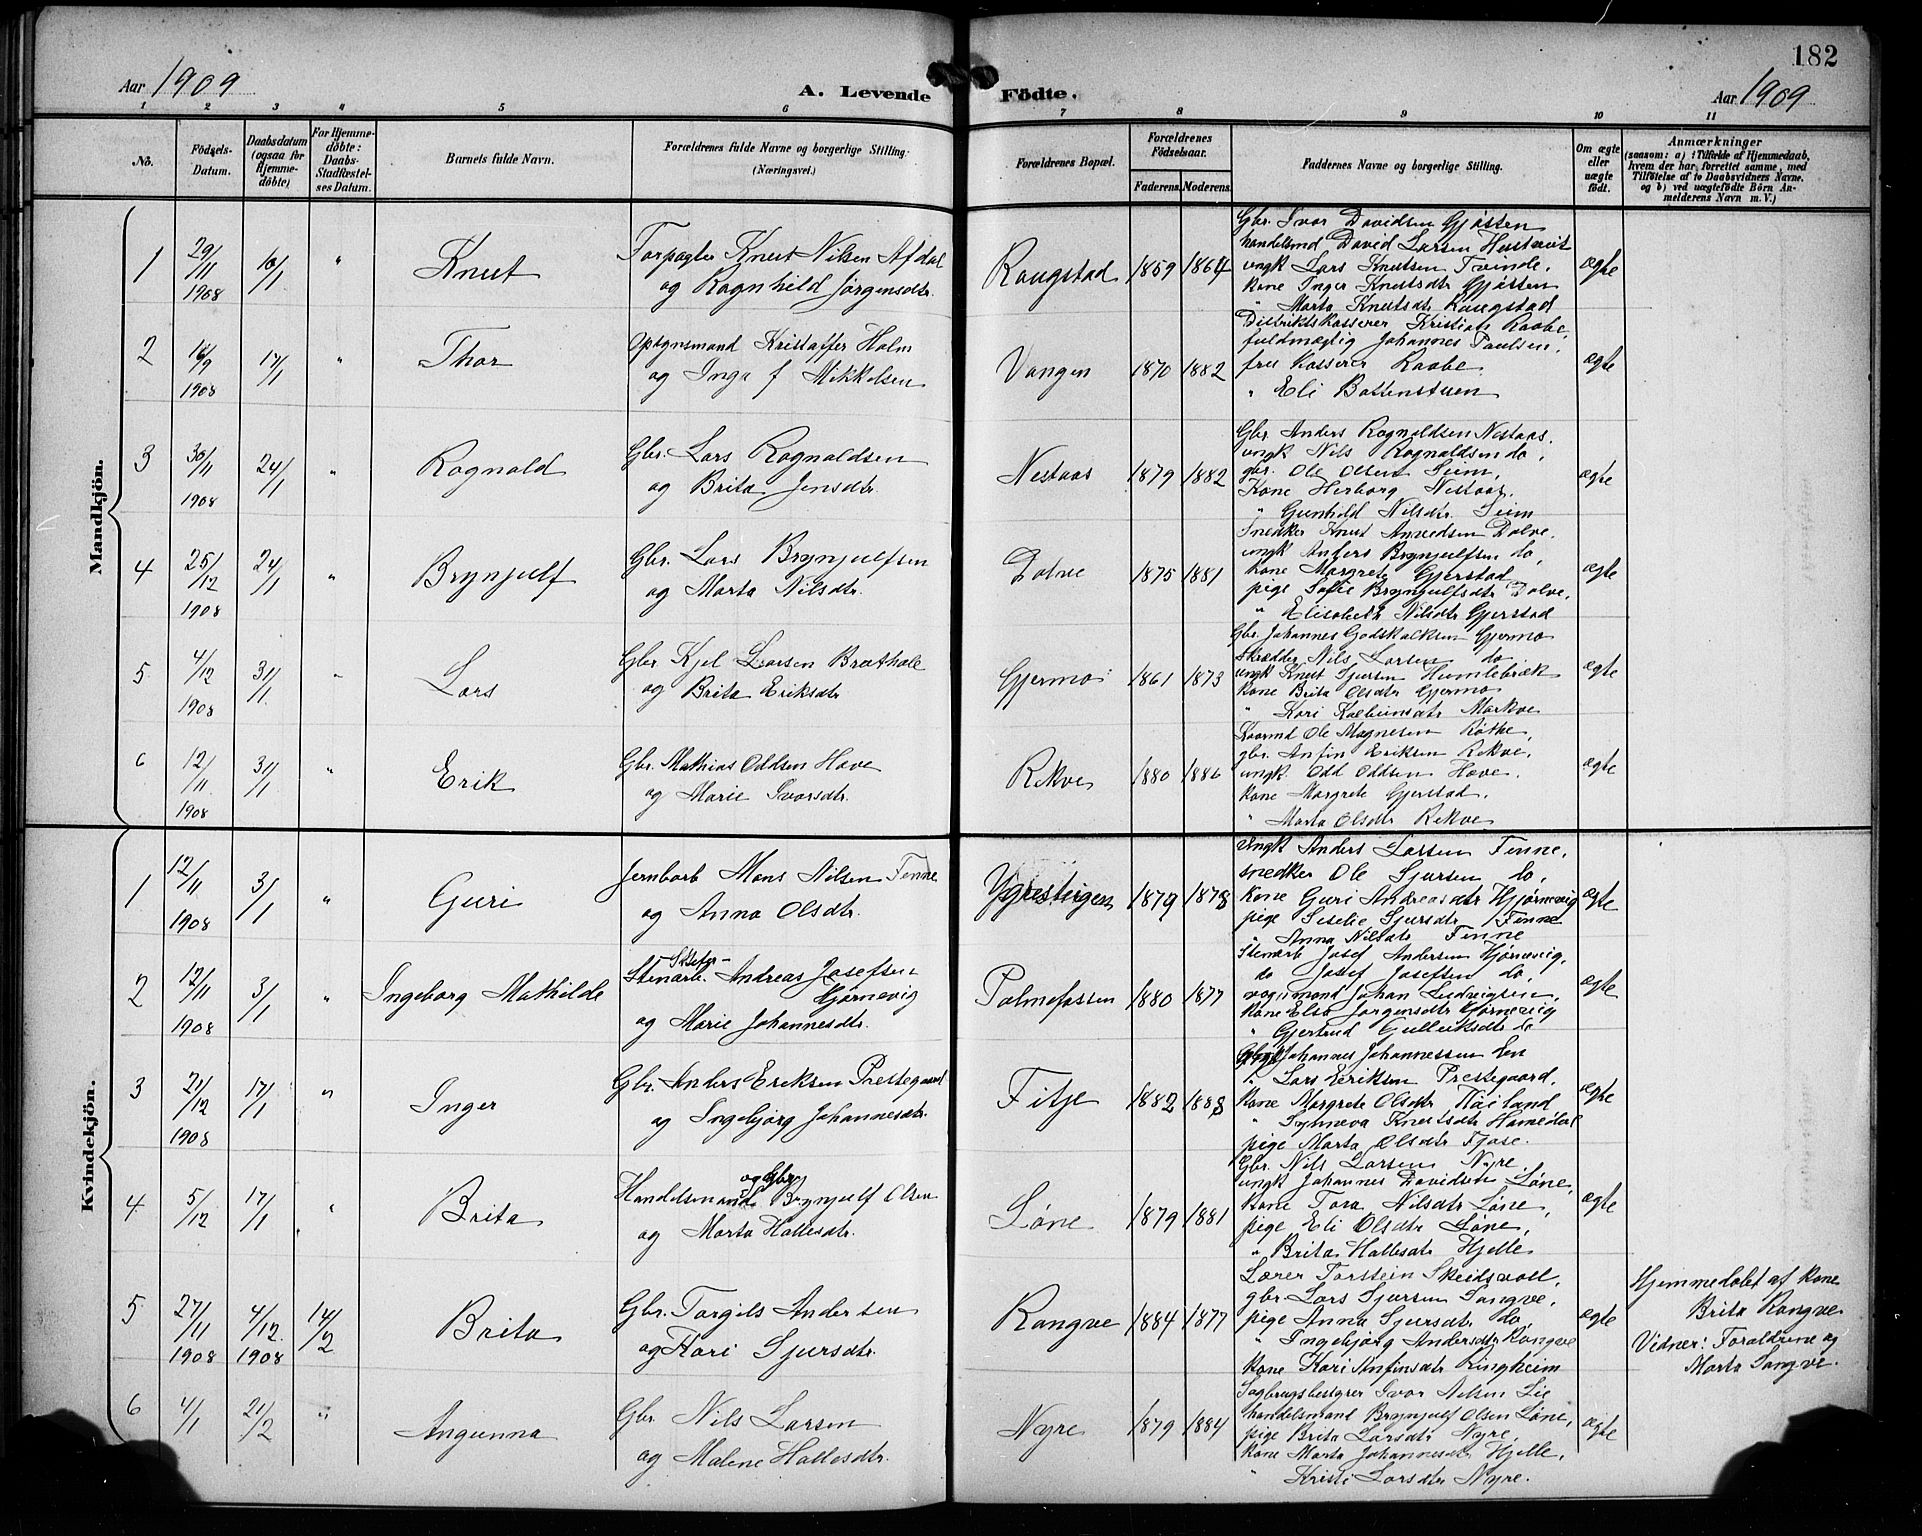 182
Aar 1909 A. Levende Födte. Aar 1909
1 2 3 4 5 6 7 8 9 10 11
No. Födsels-Datum. Daabsdatum (ogsaa for Hjemme-döbte) For Hjemme-döbte: Daabs-Stadfæstel-ses Datum. Barnets fulde Navn. Forældrenes fulde Navne og borgerlige Stilling. (Næringsvei.) Forældrenes Bopæl. Forældrenes Födselsaar. Faderens. Moderens. Faddernes Navne og borgerlige Stilling. Om ægte eller uægte födt. Anmærkninger (saasom: a) i Tilfælde af Hjemmedaab, hvem der har forrettet samme, med Tilföielse af to Daabsvidners Navne. og b) ved uægtefödte Börn An-melderens Navn m. V.)
Mandkjön.
1 29/11 1908 10/1 " Knut
Forpagter Knut Nilsen Afdal
og Ragnhild Jørgensdtr.
Raugstad 1859 1864
Gbr. Ivar Davidsen Gjøsten
handelsmd David Larsen Hustveit
ungk Lars Knutsen Tvinde.
kone Inger Knutsdtr Gjøsten
" Marta Knutsdtr Raugstad
ægte
2 16/9 1908 17/1 " Thor
Opsynsmand Kristoffer Holm
og Inga f Mikkelsen
Vangen 1870 1882
Distriktskasserer Kristian Raabe,
fuldmægtig Johannes Paulsen,
fru Kasserer Raabe
" Eli Battenstuen
ægte
3 30/11 1908 24/1 " Ragnald
Gbr. Lars Ragnaldsen
og Brita Jensdtr.
Nestaas 1879 1882
Gbr. Anders Ragnaldsen Nestaas.
ungk Nils Ragnaldsen do,
gbr. Ole Olsen Seim,
Kone Herborg Nestaas.
" Gunhild Nilsdtr. Seim
ægte
4 25/12 1908 24/1 " Brynjulf
Gbr. Lars Brynjulfsen
og Marta Nilsdtr.
Dolve 1875 1881
Snedker Knut Dolve.
ungk Anders Brynjulfsen do,
kone Margrete Gjerstad
pige Sofie Brynjulfsdtr Dolve,
" Elisabeth Nilsdtr Gjerstad
ægte
5 4/12 1908 31/1 " Lars
Gbr Kjel Larsen Brathole
og Brita Eriksdtr
Gjermo 1861 1873
Gbr. Johannes Godskalksen Gjermo
Skrædder Nils Larsen do
ungk Knut Sjursen Humlebræk
kone Brita Olsdtr Gjermo
" Kari Kolbeinsdtr Markve
ægte
6 12/11 1908 31/1 " Erik
Gbr. Mathias Oddsen Hove
og Marie Ivarsdtr.
Rekve 1880 1886
Kaarmd Ole Magnesen Røthe,
gbr. Anfin Eriksen Rekve,
ungk. Odd Oddsen Hove.
kone Margrete Gjerstad.
" Marta Olsdtr Rekve
ægte
Kvindekjön.
1 12/11 1908 3/1 " Guri
Jernbarb Mons Nilsen Finne
og Anna Olsdtr.
1879 1878
Ungk Anders Larsen Finne,
snedker Ole Sjursen do,
kone Guri Andreasdtr Hjørnevig
pige Siselie Sjursdtr Finne
" Anna Nilsdtr Finne
ægte
2 12/11 1908 3/1 " Ingeborg Mathilde
Stenarb. Andreas Josefsen
Hjørnevig
og Marie Johannesdtr.
Palmefossen 1880 1877
Stenarb Josef Andersen Hjørnevig,
do Josef Josefsen do,
vognmand Johan Ludvigsen,
kone Elsa Jørgensdtr Hjørnevig
" Gjertrud Gulleiksdtr do
ægte
3 21/12 1908 17/1 " Inger
Gbr. Anders Eriksen Prestegaard
og Ingebjørg Johannesdtr.
Fitje 1882 1883
Johannes Johannessen Een
" Lars Eriksen Prestegaard.
kone Margrete Olsdtr
" Synneva Knutsdtr
pige Marta Olsdtr Fjose.
ægte
4 5/12 17/1 " Brita
og Gbr.
Handelsmand Brynjulf Olsen
og Marta Hallesdtr.
Løne 1879 1881
Gbr. Nils Larsen Nyre
ungk Johannes Davidsen Løne,
kone Tora Nilsdtr Løne,
pige Eli Olsdtr Løne,
" Brita Hallesdtr Hjelle
ægte
5 27/11 1908 4/12 1908 14/2 Brita
Gbr. Torgils Andersen
og Kari Sjursdtr.
Rongve 1884 1877
Lærer Torstein Skeidsvoll,
gbr. Lars Sjursen Sangve,
pige Anna Sjursdtr do,
" Ingebjørg Andersdtr Rongve
kone Kari Anfinsdtr Ringheim
ægte
Hjemmedøbt af kone
Brita Rongve.
Vidner: Forældrene og
Marta Sangve.
6 4/1 21/2 " Angunna
Gbr. Nils Larsen
og Malene Hallesdtr.
Nyre 1879 1884
Sagbrugsbestyrer Ivar Nilsen Lie
handelsmand Brynjulf Olsen Løne,
pige Brita Larsdtr Nyre,
kone Marta Johannesdtr Hjelle,
" Kristi Larsdtr Nyre.
ægte